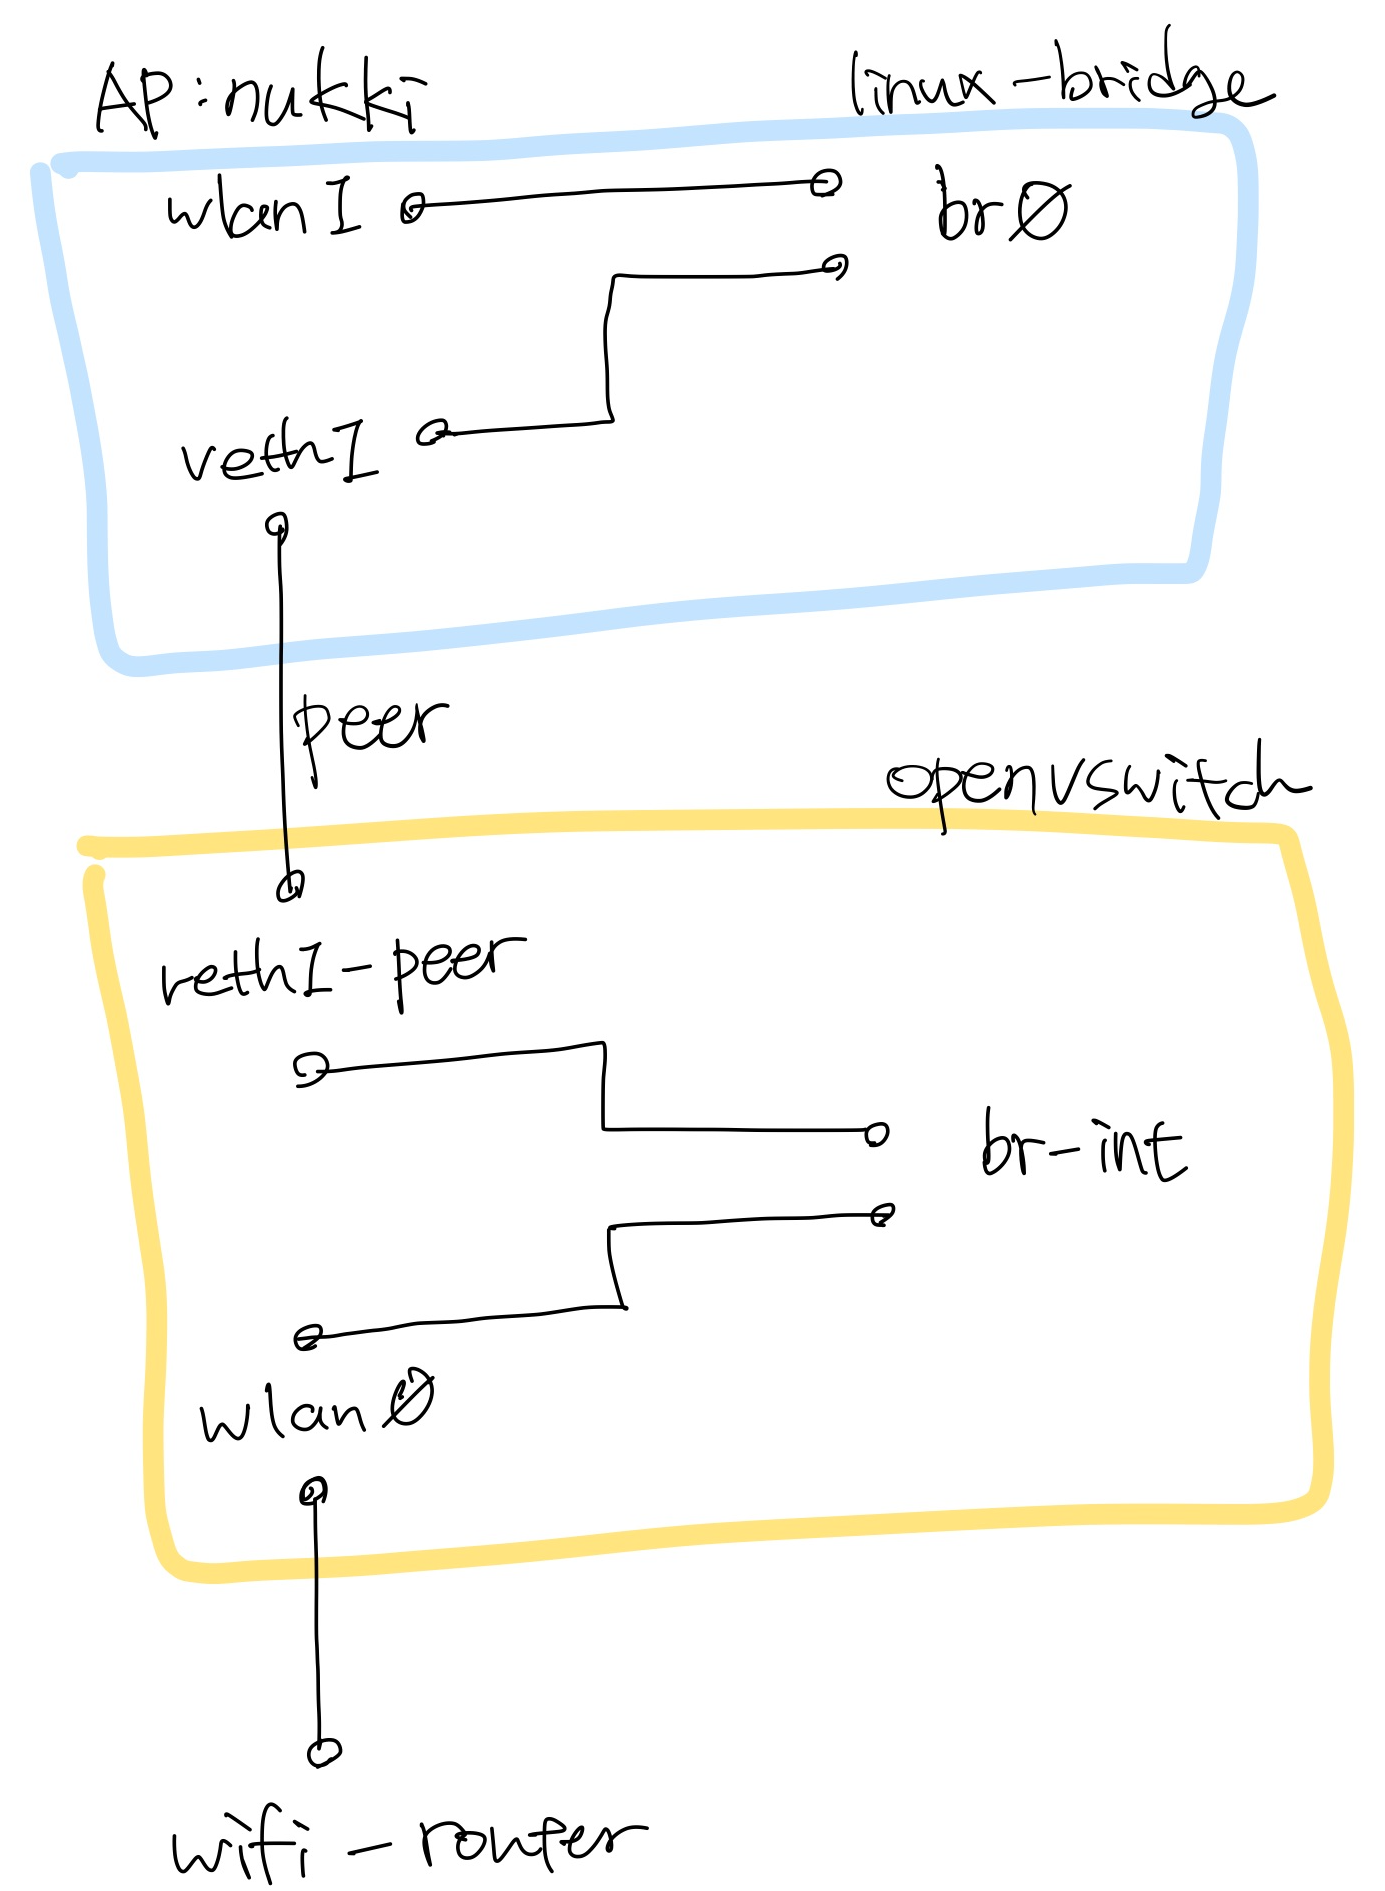 AP:nukki
linux-bridge
wlan1
br0
veth1
peer
openvswitch
veth1-peer
br-int
wlan0
wifi-router